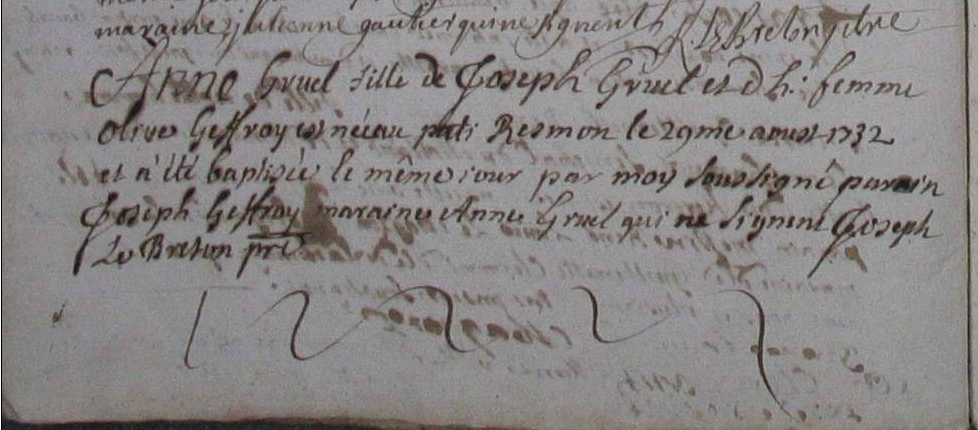 maraine julienne gautier qui ne signent J le Breton ptre
Anne Gruel fille de Joseph Gruel et d h. femme
olive Geffroy est née au peti Resmon le 29me aoust 1732
et a été baptisée le même jour par moy soussigné parain
Joseph Geffroy maraine Anne Gruel qui ne signent Joseph
Le Breton pre